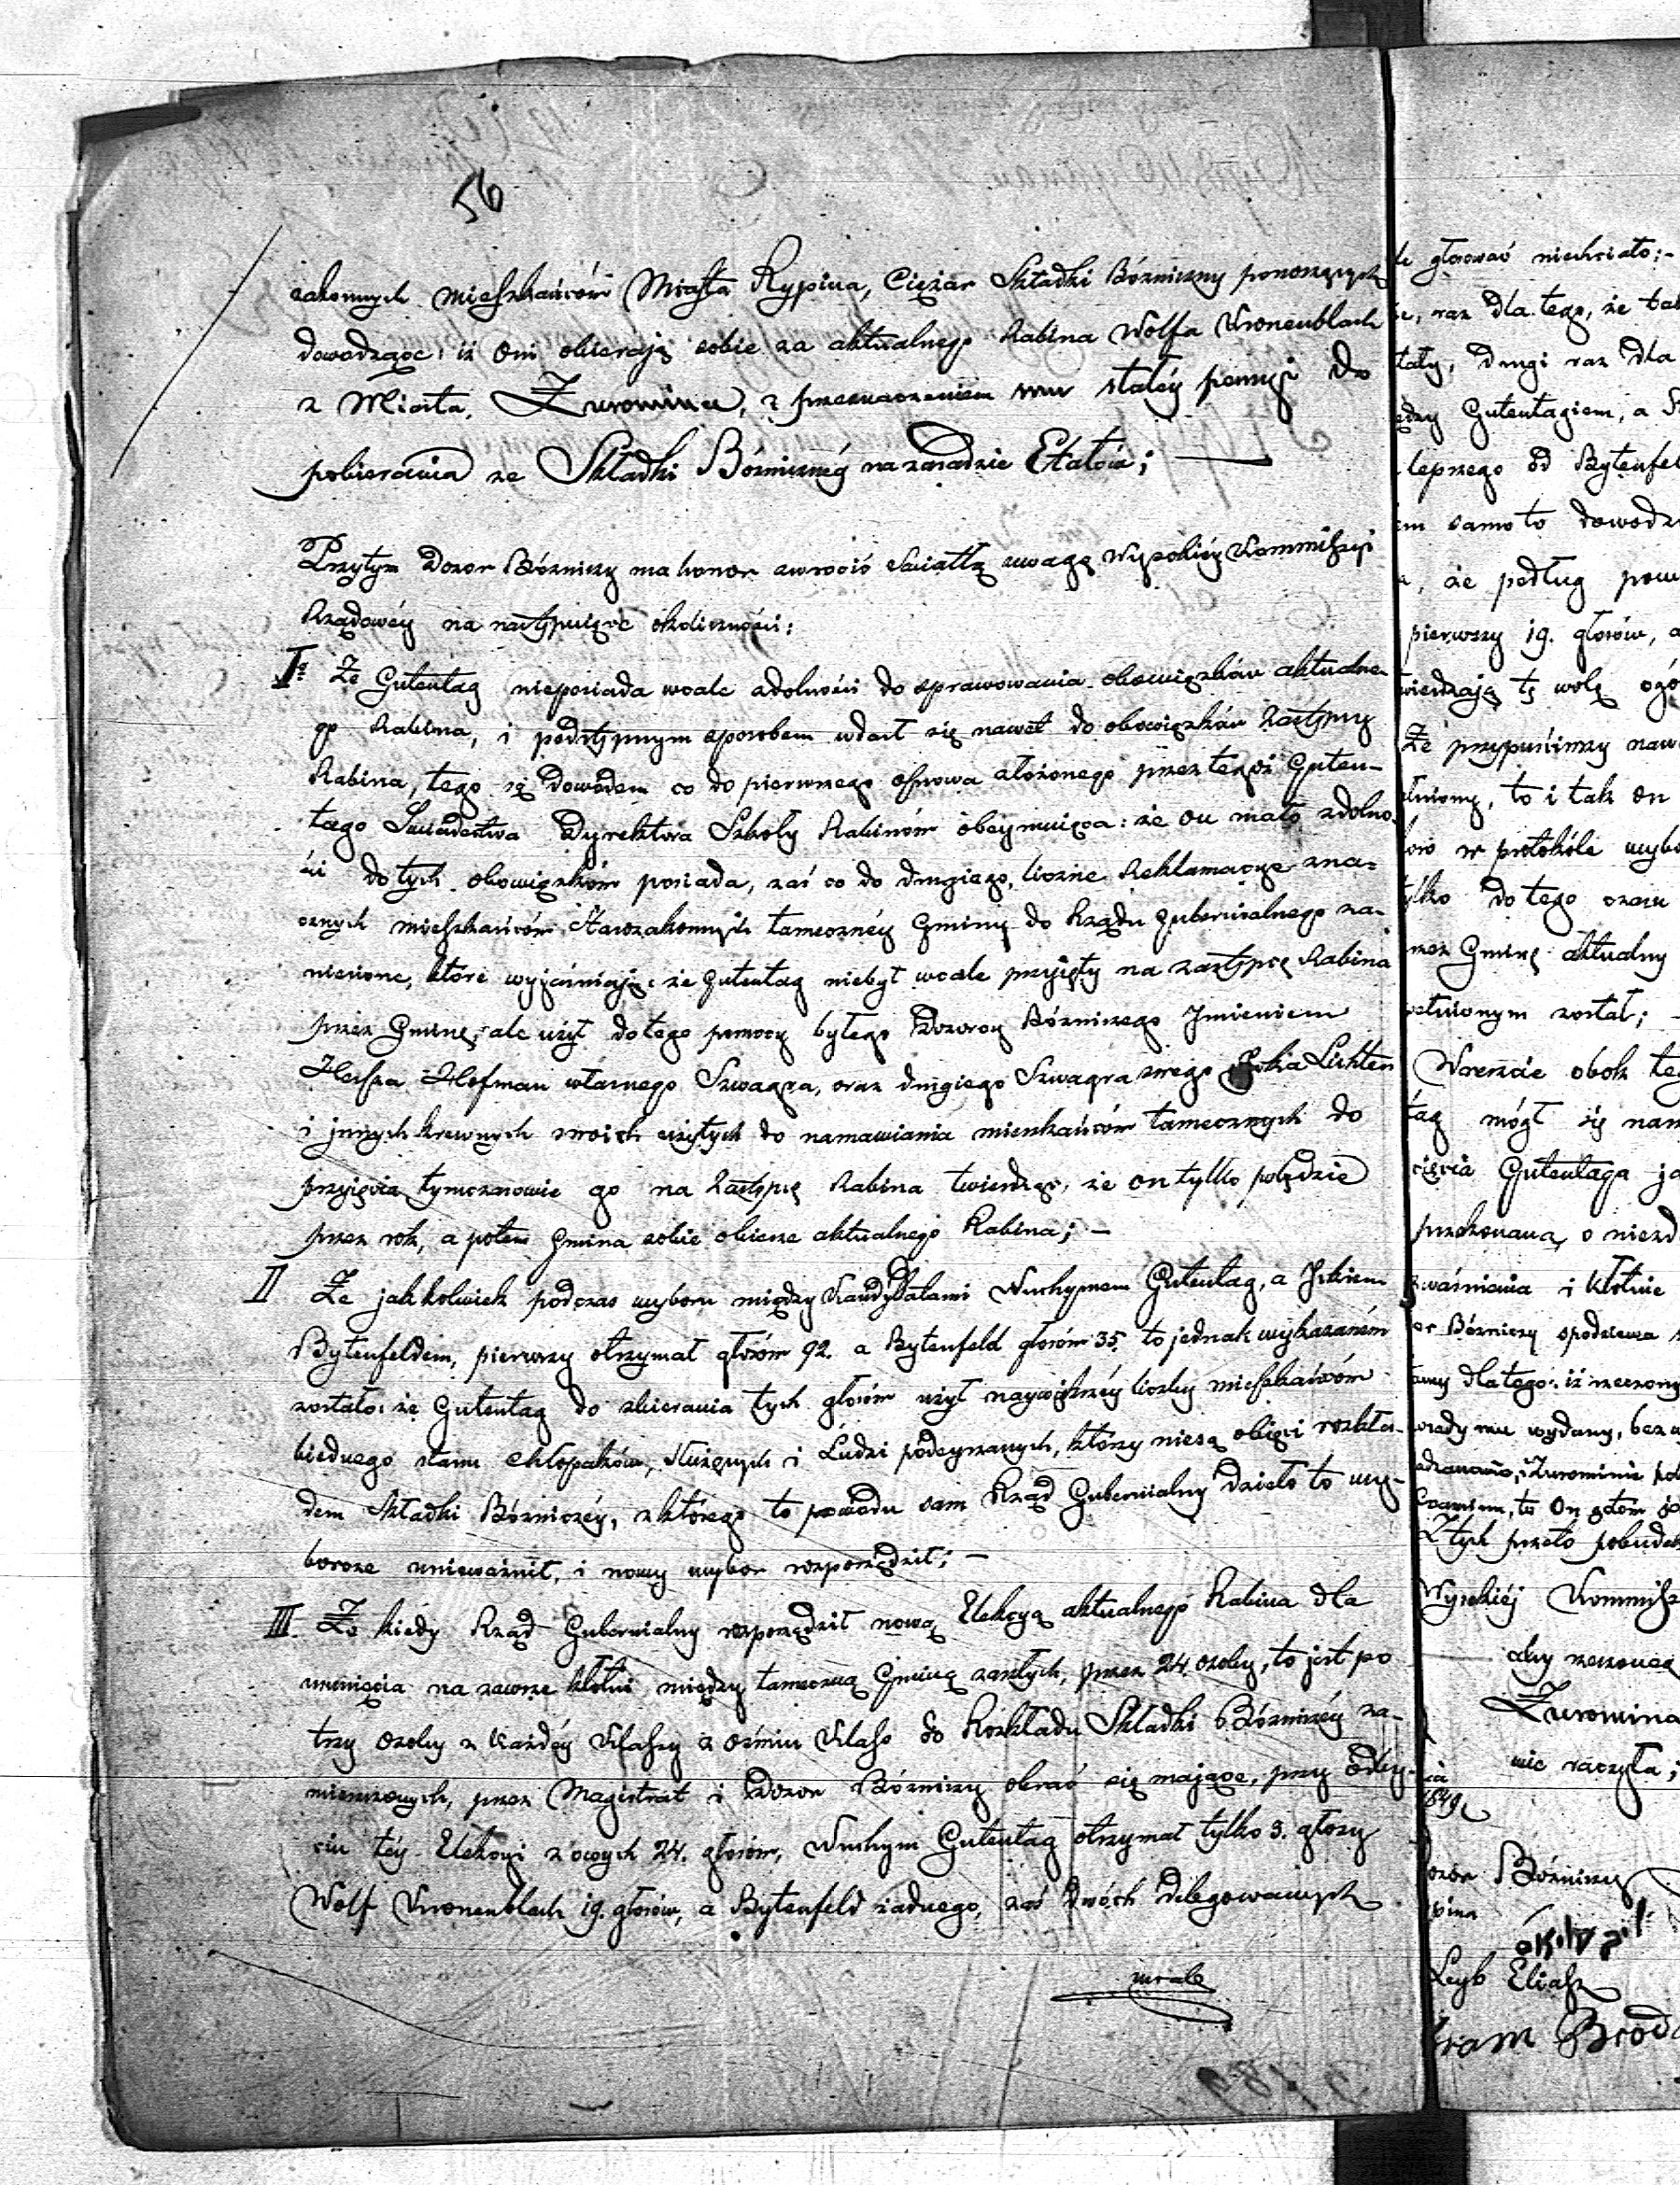 56
zakonnych mieszkańców Miasta Rypina, Ciężar Składki Bóżniczny ponoszących
dowodzące: iż oni obierają sobie za aktualnego Rabina Wolfa Kronenblach
z Miasta Żuromina, z przeznaczeniem mu stałéy pensyi do
pobierania ze Składki Bóżnicznéy na zasadzie Etatów; —
Przytym Dozor Bóżniczy ma honor zwrócić światłą uwagę Wysokiéy Kommissyi
Rządowéy na następuiące okoliczności:
I° Że Gutentag nieposiada wcale zdolności do sprawowania obowiązków aktualne
go Rabina, i podstępnym sposobem wdarł się nawet do obowiązków Zastępcy
Rabina, tego są dowodem co do pierwszego osnowa złożonego przez tegoż Guten-
taga Świadectwa Dyrektora Szkoły Rabinów obeymuiąca: że on mało zdolno
ści do tych obowiązków posiada, zaś co do drugiego, liczne Reklamacye zna=
cznych mieszkańców Starozakonnych tameczney Gminy do Rządu Gubernialnego za-
niesione, które wyjaśniają: że Gutentag niebył wcale przyięty na zastępcę Rabina
przez Gminę; ale użył do tego pomocy byłego Dozorcy Bóżniczego Jmieniem
Herszka Hofman własnego Szwagra, oraz drugiego Szwagra swego Lichten
i jnnych krewnych swoich użytych do namawiania mieszkańców tamecznych do
przyięcia tymczasowie go na Zastępcę Rabina twierdząc, że on tylko pobędzie
przez rok, a potem Gmina sobie obierze aktualnego Rabina; —
II Że jakkolwiek podczas wyboru między Kandydatami Wuchymem Gutentag, a Jckiem
Bytenfeldem, pierwszy otrzymał głosów 92. a Bytenfeld głosów 35, to jednak wykazaném
zostało: że Gutentag do zbierania tych głosów użył naywiększéy liczby mieszkańców
biednego stanu Chłopaków, Służących i Ludzi podeyrzanych, którzy niesą obięci rozkła-
dem Składki Bóżniczéy, z którego to powodu sam Rząd Gubernialny dzieło to wy-
borcze unieważnił, i nowy wybor rozporządził; —
III. Że kiedy Rząd Gubernialny rozporządził nową Elekcyą aktualnego Rabina dla
usunięcia na zawsze kłótni między tameczną Gminą zaszłych, przez 24. osoby, to jest po
trzy osoby z każdéy Klassy z ośmiu Klass do Rozkładu Składki Bóżniczéy za-
mieszczonych, przez Magistrat i Dozor Bóżniczy obrać się maiące, przy odby-
ciu téy Elekcyi z owych 24. głosów, Wuchym Gutentag otrzymał tylko 3. głosy
Wolf Kronenblach 19. głosów, a Bytenfeld żadnego, zaś dwóch delegowanych
wcale
głosować niechciało;-
raz dla tego, że
drugi raz dla
Gutentagiem, a
lepszego od Bytenfel
samo to dowodz
że podług
pierwszy 19. głosów, a
tę wolę ogó
Że przypuśćmy naw
to i tak on
w protokóle wyb
do tego czasu
Gminę aktualny
został; -
Wreszcie obok te
mógł się nam
Gutentaga ja
o niezd
i kłótnie
Bóżniczy spodziewa
dla tego: iż rzeczony
mu wydany, bez
to On gotów
Z tych przeto pobudek
Wysokiéj Kommiss
aby rzeczonego
Żuromina
raczyła;
1849
Bóżniczy
Leyb Eliasz
Brod